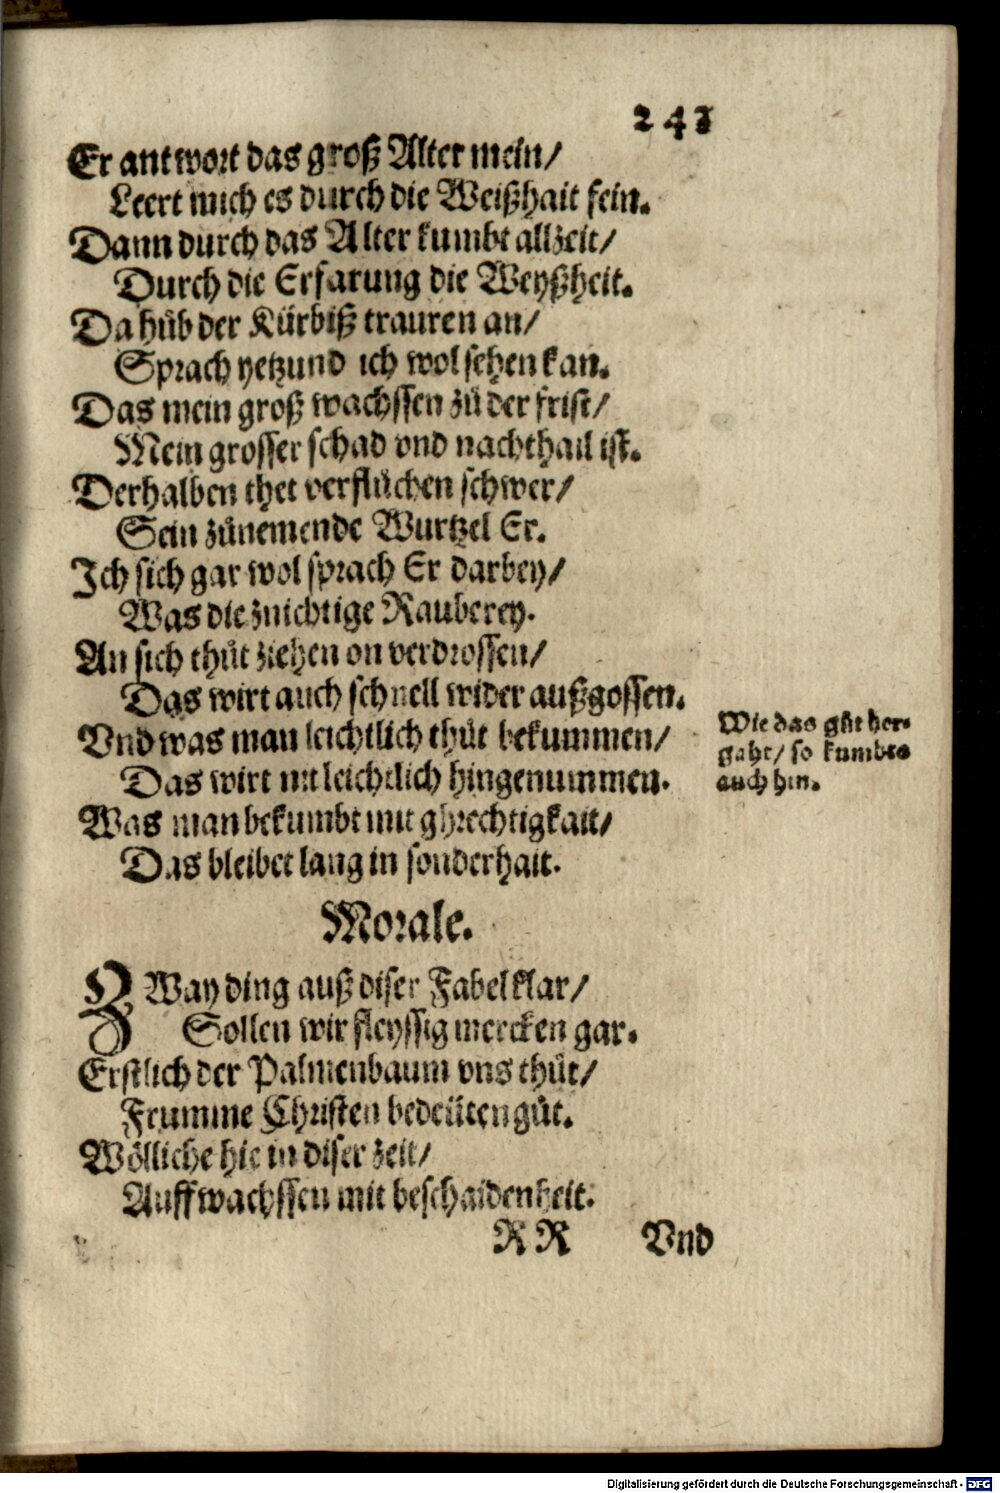 243
Er antwort das groß Alter mein/
Leert mich es durch die Weißhait fein.
Dann durch das Alter kumbt allzeit/
Durch die Erfarung die Weyßheit.
Da hůb der Kürbiß trauren an/
Sprach yetzund ich wol sehen kan.
Das mein groß wachssen zů der frist/
Mein grosser schad vnd nachthail ist.
Derhalben thet verflůchen schwer/
Sein zůnemende Wurtzel Er.
Ich sich gar wol sprach Er darbey/
Was die znichtige Rauberey.
An sich thůt ziehen on verdrossen/
Das wirt auch schnell wider außgossen.
Vnd was man leichtlich thůt bekummen/
Das wirt mit leichtlich hingenummen.
Was man bekumbt mit ghrechtigkait/
Das bleibet lang in sonderhait.
Wie das gůt her-
gaht/ so kumbts
auch hin.
Morale.
ZWay ding auß diser Fabel klar/
Sollen wir fleyssig mercken gar.
Erstlich der Palmenbaum vns thůt/
Frumme Christen bedeüten gůt.
Wölliche hie in diser zeit/
Auffwachssen mit beschaidenheit.
RR Vnd
Digitalisierung gefördert durch die Deutsche Forschungsgemeinschaft - DFG